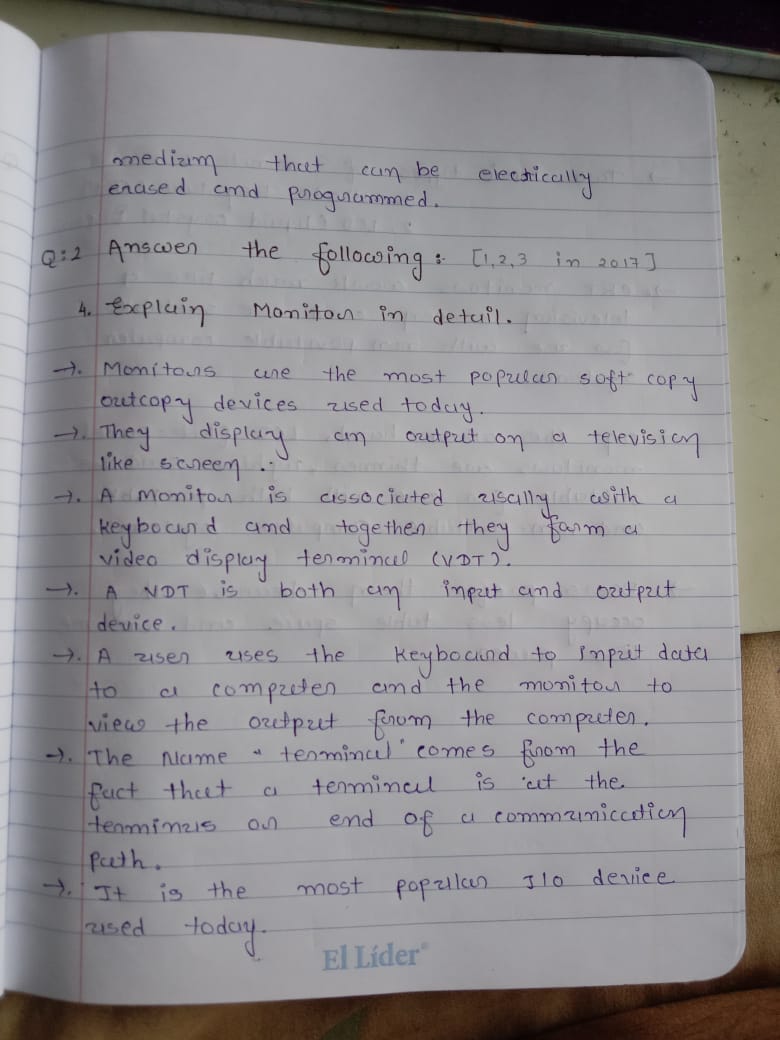 medium that can be electrically
erased and programmed.
Q:2 Answer the following :- [1,2,3 in 2017]
4. Explain Monitor in detail.
→. Monitors are the most popular soft copy
outcopy devices used today.
→. They display an output on a television
like screen .
→. A Monitor is associated usally with a
keyboard and together they form a
video display terminal (VDT).
→. A VDT is both an input and output
device.
→. A user uses the keyboard to input data
to a computer and the monitor to
view the output from the computer.
→. The Name "terminal" comes from the
fact that a terminal is at the
terminus or end of a communication
path.
→. It is the most popular I/O device
used today.
El Líder®